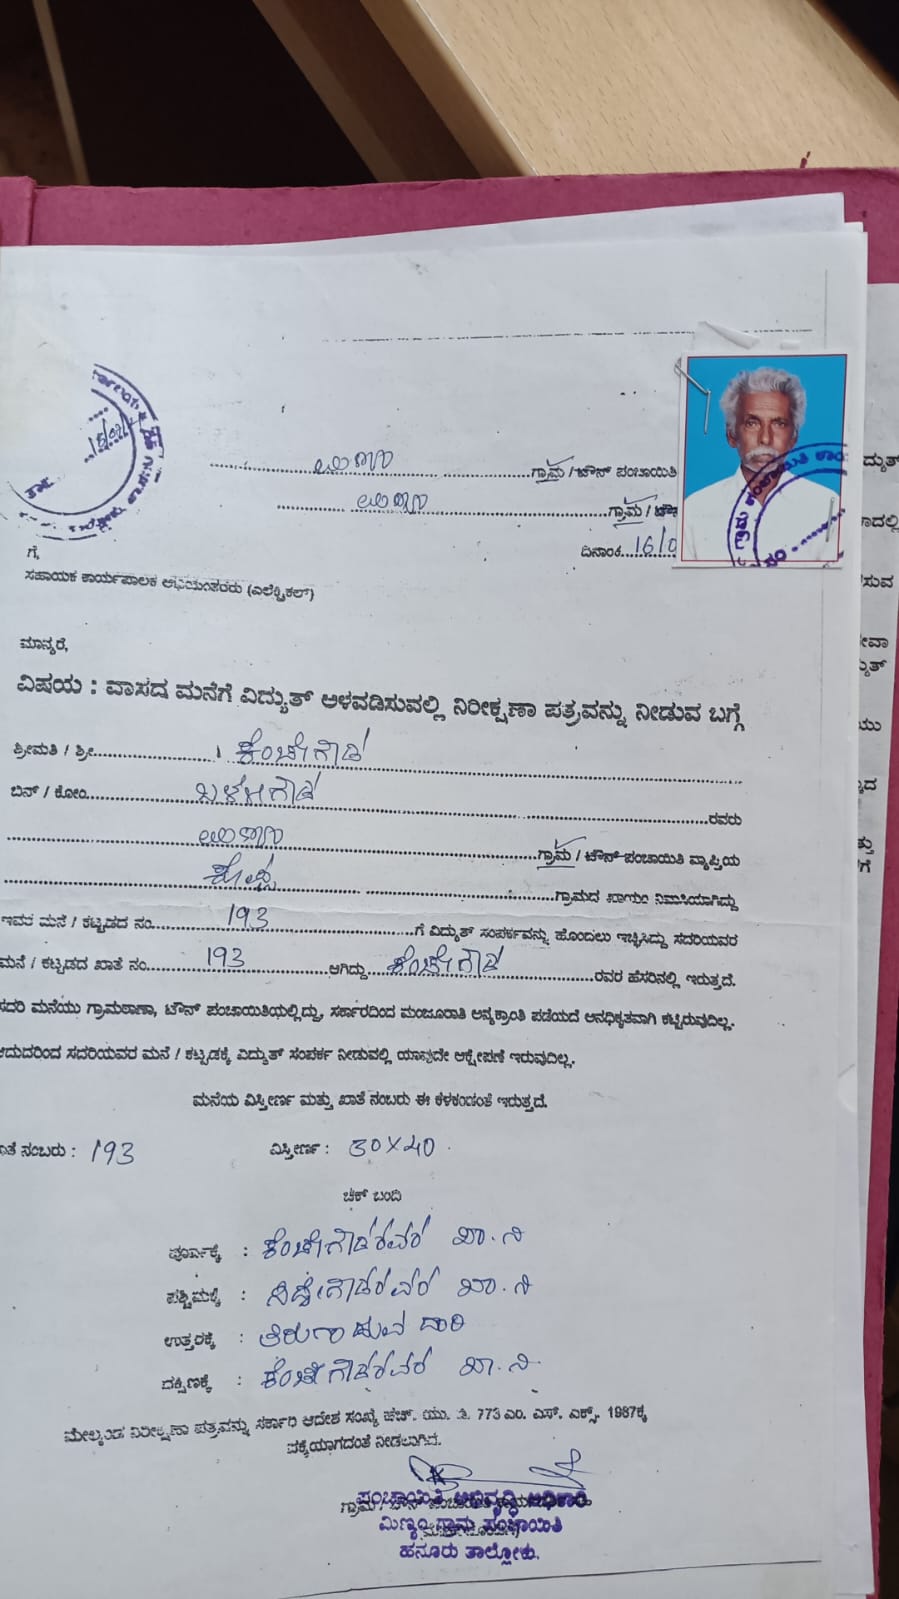 ಮಿಣ್ಯಂ ಗ್ರಾಮ / ಟೌನ್ ಪಂಚಾಯಿತಿ
ಮಿಣ್ಯಂ ಗ್ರಾಮ / ಟೌ
ದಿನಾಂಕ 16/0
ಗೆ,
ಸಹಾಯಕ ಕಾರ್ಯಪಾಲಕ ಅಭಿಯಂತರರು (ಎಲೆಕ್ಟ್ರಿಕಲ್)
ಮಾನ್ಯರೆ,
ವಿಷಯ : ವಾಸದ ಮನೆಗೆ ವಿದ್ಯುತ್ ಅಳವಡಿಸುವಲ್ಲಿ ನಿರೀಕ್ಷಣಾ ಪತ್ರವನ್ನು ನೀಡುವ ಬಗ್ಗೆ
ಶ್ರೀಮತಿ / ಶ್ರೀ ಕೆಂಚೇಗೌಡ
ಬಿನ್ / ಕೋಂ ರವರು
ಮಿಣ್ಯಂ ಗ್ರಾಮ / ಟೌನ್ ಪಂಚಾಯಿತಿ ವ್ಯಾಪ್ತಿಯ
ಗ್ರಾಮದ ಖಾಯಂ ನಿವಾಸಿಯಾಗಿದ್ದು
ಇವರ ಮನೆ / ಕಟ್ಟಡದ ನಂ. 193 ಗೆ ವಿದ್ಯುತ್ ಸಂಪರ್ಕವನ್ನು ಹೊಂದಲು ಇಚ್ಛಿಸಿದ್ದು ಸದರಿಯವರ
ಮನೆ / ಕಟ್ಟಡದ ಖಾತೆ ನಂ. 193 ಆಗಿದ್ದು ಕೆಂಚೇಗೌಡ ರವರ ಹೆಸರಿನಲ್ಲಿ ಇರುತ್ತದೆ.
ಸದರಿ ಮನೆಯು ಗ್ರಾಮಠಾಣಾ, ಟೌನ್ ಪಂಚಾಯಿತಿಯಲ್ಲಿದ್ದು, ಸರ್ಕಾರದಿಂದ ಮಂಜೂರಾತಿ ಅನ್ಯಕ್ರಾಂತಿ ಪಡೆಯದೆ ಅನಧಿಕೃತವಾಗಿ ಕಟ್ಟಿರುವುದಿಲ್ಲ.
ಆದುದರಿಂದ ಸದರಿಯವರ ಮನೆ / ಕಟ್ಟಡಕ್ಕೆ ವಿದ್ಯುತ್ ಸಂಪರ್ಕ ನೀಡುವಲ್ಲಿ ಯಾವುದೇ ಆಕ್ಷೇಪಣೆ ಇರುವುದಿಲ್ಲ.
ಮನೆಯ ವಿಸ್ತೀರ್ಣ ಮತ್ತು ಖಾತೆ ನಂಬರು ಈ ಕೆಳಕಂಡಂತೆ ಇರುತ್ತದೆ.
ಾತೆ ನಂಬರು : 193 ವಿಸ್ತೀರ್ಣ : 30×40
ಚಕ್ ಬಂದಿ
ಪೂರ್ವಕ್ಕೆ : ಕೆಂಚೇಗೌಡರವರ ಖಾ.ನಿ
ಪಶ್ಚಿಮಕ್ಕೆ : ಸಿದ್ದೇಗೌಡರವರ ಖಾ.ನಿ
ಉತ್ತರಕ್ಕೆ : ತಿರುಗಾಡುವ ದಾರಿ
ದಕ್ಷಿಣಕ್ಕೆ : ಕೆಂಚೇಗೌಡರವರ ಖಾ.ನಿ
ಮೇಲ್ಕಂಡ ನಿರೀಕ್ಷಣಾ ಪತ್ರವನ್ನು ಸರ್ಕಾರಿ ಆದೇಶ ಸಂಖ್ಯೆ ಹೆಚ್. ಯು. 773 ಎಂ. ಎಸ್. ಎಕ್ಸ್. 1987ಕ್ಕೆ
ನೀಡಲಾಗಿದೆ.
ಪಂಚಾಯಿತಿ ಅಭಿವೃದ್ಧಿ ಅಧಿಕಾರಿ
ಮಿಣ್ಯಂ ಗ್ರಾಮ ಪಂಚಾಯಿತಿ
ಹನೂರು ತಾಲ್ಲೋಕು.